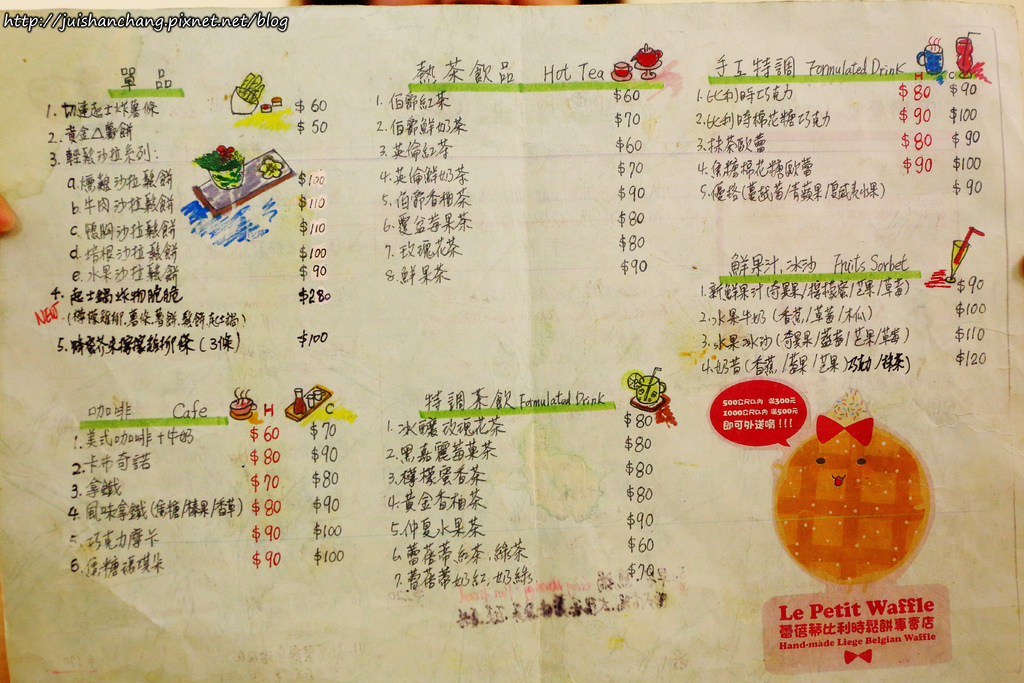 http://juishanchang.pixnet.net/blog
單品
1. 切達起士炸薯條 $60
2. 黃金△薯餅 $50
3. 輕鬆沙拉系列:
a. 燻雞沙拉鬆餅 $100
b. 牛肉沙拉鬆餅 $110
c. 鴨胸沙拉鬆餅 $110
d. 培根沙拉鬆餅 $100
e. 水果沙拉鬆餅 $90
4. 起士鍋炸物脆脆 $280
NEW (檸檬雞柳.薯條.薯餅.鬆餅.起士鍋)
5. 蜂蜜芥末檸檬雞柳條 (3條) $100
咖啡 Cafe H C
1. 美式咖啡+牛奶 $60 $70
2. 卡布奇諾 $80 $90
3. 拿鐵 $70 $80
4. 風味拿鐵 (焦糖/榛果/香草) $80 $90
5. 巧克力摩卡 $90 $100
6. 焦糖瑪琪朵 $90 $100
熱茶飲品 Hot Tea
1. 伯爵紅茶 $60
2. 伯爵鮮奶茶 $70
3. 英倫紅茶 $60
4. 英倫鮮奶茶 $70
5. 伯爵香柚茶 $90
6. 覆盆莓果茶 $80
7. 玫瑰花茶 $80
8. 鮮果茶 $90
特調茶飲 Formulated Drink
1. 冰釀玫瑰花茶 $80
2. 黑嘉麗莓菓茶 $80
3. 檸檬蜜香茶 $80
4. 黃金香柚茶 $80
5. 仲夏水果茶 $90
6. 蕾蓓蒂紅茶.綠茶 $60
7. 蕾蓓蒂奶紅.奶綠 $70
手工特調 Formulated Drink H C
1. 比利時巧克力 $80 $90
2. 比利時棉花糖巧克力 $90 $100
3. 抹茶歐蕾 $80 $90
4. 焦糖棉花糖歐蕾 $90 $100
5. 優格 (蔓越莓/青蘋果/夏威夷水果) $90
鮮果汁.冰沙 Fruits Sorbet
1. 新鮮果汁 (奇異果/檸檬蜜/芒果/草莓) $90
2. 水果牛奶 (香蕉/草莓/木瓜) $100
3. 水果冰沙 (奇異果/藍莓/芒果/草莓) $110
4. 奶昔 (香蕉/莓果/芒果/巧克力/抹茶) $120
500公尺以內 滿300元
1000公尺以內 滿500元
即可外送唷!!!
Le Petit Waffle
蕾蓓蒂比利時鬆餅專賣店
Hand-made Liege Belgian Waffle